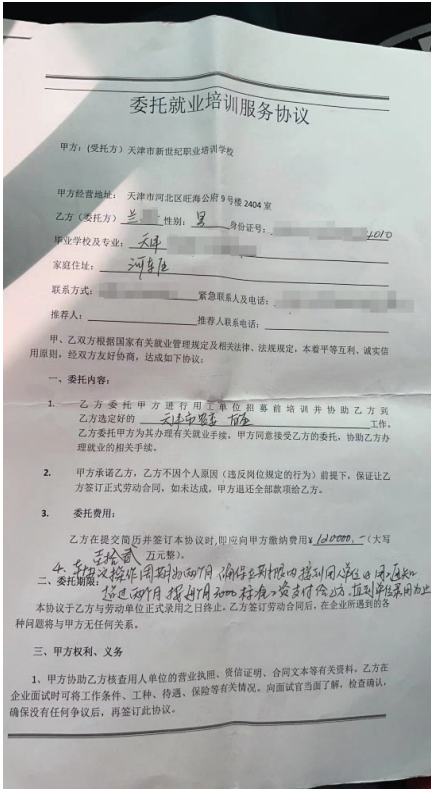 委托就业培训服务协议
甲方：(受托方）天津市新世纪职业培训学校
甲方经营地址： 天津市河北区旺海公府9号楼2404室
乙方（委托方）兰 性别：男 身份证号： 4010
毕业学校及专业：天津
家庭住址： 河东区
联系方式： 紧急联系人及电话：
推荐人： 推荐人联系电话：
甲、乙双方根据国家有关就业管理规定及相关法律、法规规定，本着平等互利、诚实信
用原则，经双方友好协商，达成如下协议：
一、委托内容：
1. 乙方委托甲方进行用工单位招募前培训并协助乙方到
乙方选定好的 天津市 工作。
乙方委托甲方为其办理有关就业手续。甲方同意接受乙方的委托，协助乙方办
理就业的相关手续。
2. 甲方承诺乙方，乙方不因个人原因（违反岗位规定的行为）前提下，保证让乙
方签订正式劳动合同，如未达成，甲方退还全部款项给乙方。
3. 委托费用：
乙方在提交简历并签订本协议时，即应向甲方缴纳费用￥120000.-（大写
壹拾贰 万元整）。
4. 本协议操作周期为两个月，确保在期限内接到用人单位的用工通知
二、委托期限：
超过两个月按每月3000标准工资支付给乙方，直到单位录用为止
本协议于乙方与劳动单位正式录用之日终止。乙方签订劳动合同后，在企业所遇到的各
种问题将与甲方无任何关系。
三、甲方权利、义务
1、甲方协助乙方核查用人单位的营业执照、资信证明、合同文本等有关资料。乙方在
企业面试时可将工作条件、工种、待遇、保险等有关情况。向面试官当面了解，检查确认，
确保没有任何争议后，再签订此协议。